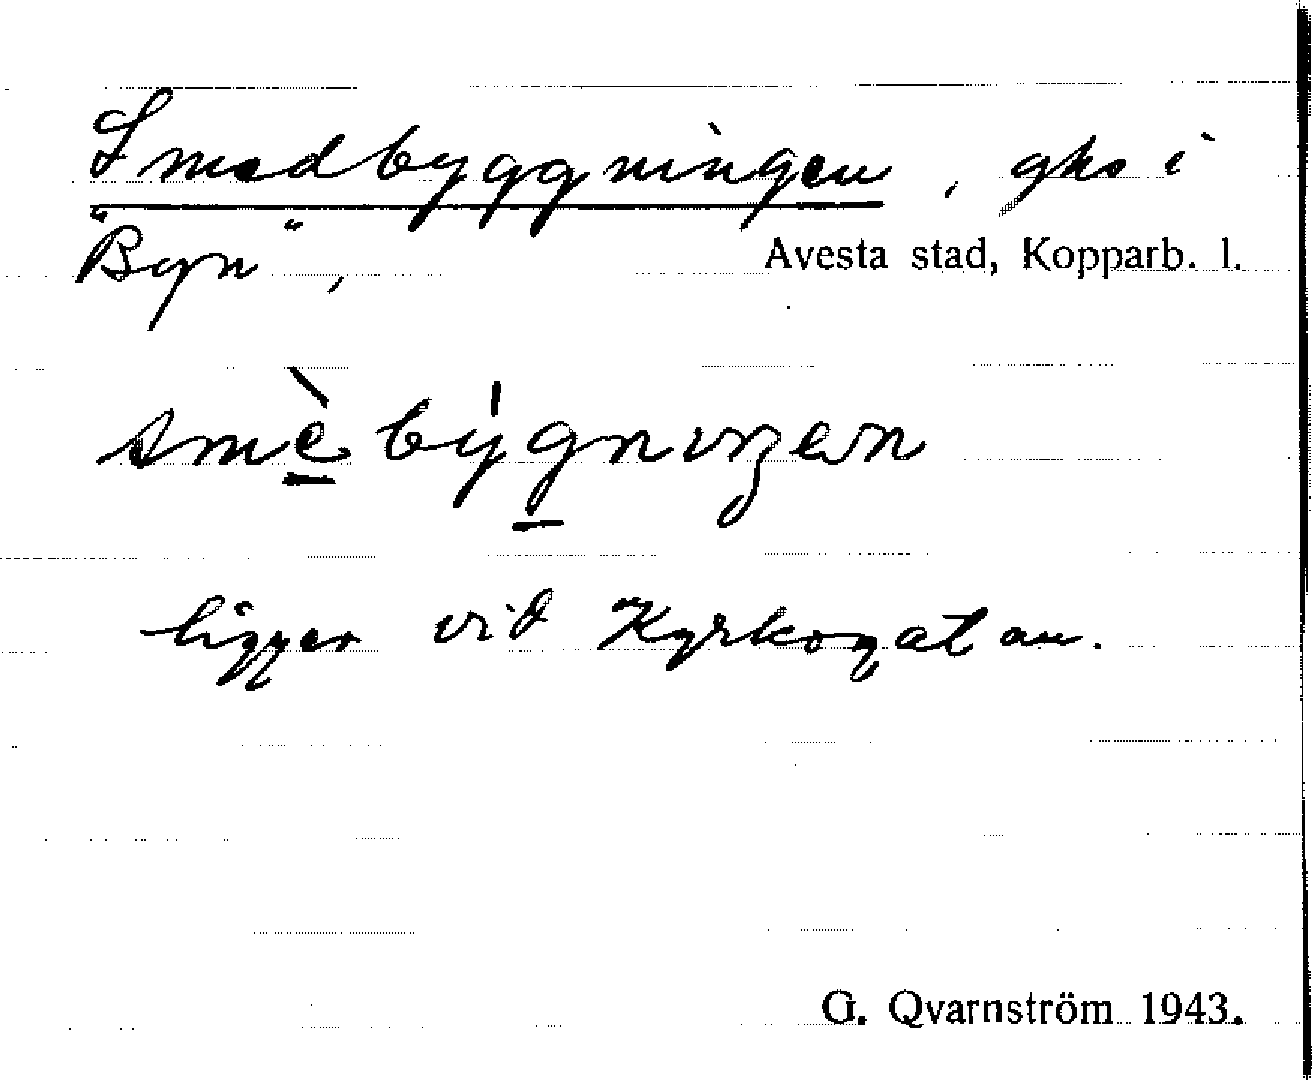 Smedbyggningen, gks i
"Byn", Avesta stad, Kopparb. l.
smè̠býg̠nıŋen
ligger vid Kyrkogatan.
G. Qvarnström 1943.